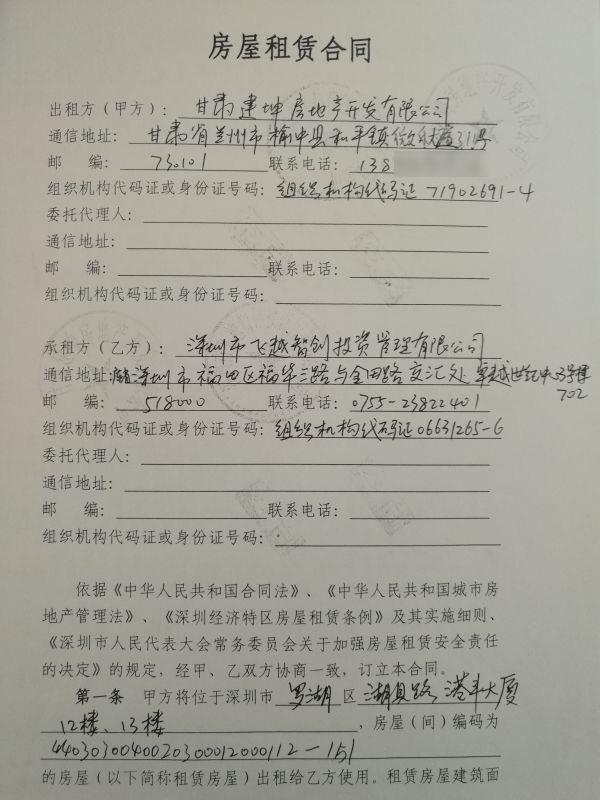 房屋租赁合同
出租方（甲方）：甘肃建坤房地产开发有限公司
通信地址：甘肃省兰州市榆中县和平镇徽 31号
邮 编：730101 联系电话：138
组织机构代码证或身份证号码：组织机构代码证 71902691-4
委托代理人：
通信地址：
邮 编： 联系电话：
组织机构代码证或身份证号码：
承租方（乙方）：深圳市飞越智创投资管理有限公司
通信地址：深圳市福田区福华三路与金田路交汇处 卓越世纪中心3号楼
702
邮 编：518000 联系电话：0755-23822401
组织机构代码证或身份证号码：组织机构代码证06631265-6
委托代理人：
通信地址：
邮 编： 联系电话：
组织机构代码证或身份证号码：
依据《中华人民共和国合同法》、《中华人民共和国城市房
地产管理法》、《深圳经济特区房屋租赁条例》及其实施细则、
《深圳市人民代表大会常务委员会关于加强房屋租赁安全责任
的决定》的规定，经甲、乙双方协商一致，订立本合同。
第一条 甲方将位于深圳市 罗湖 区 湖贝路 港丰大厦
12楼、13楼 ，房屋（间）编码为
4403030040020300012000112-151
的房屋（以下简称租赁房屋）出租给乙方使用。租赁房屋建筑面